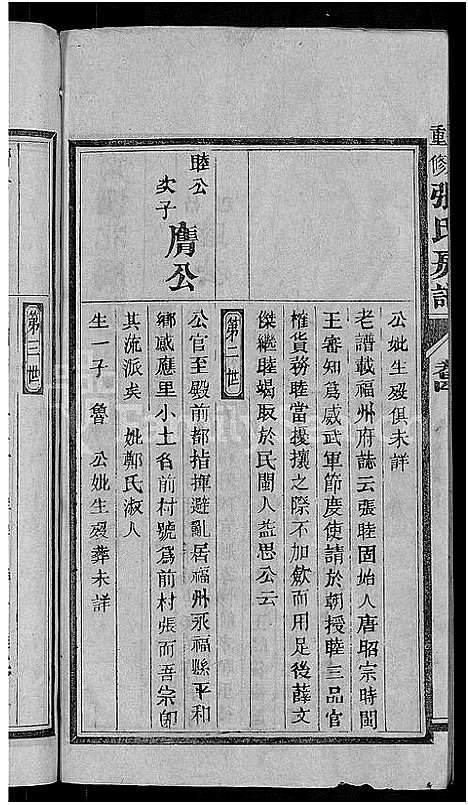 重修張氏房譜
公妣生歿俱未詳
老譜載福州府誌云張睦固始人唐昭宗時閩
王審知為威武軍節度使請於朝授睦三品官
榷貨務睦當擾攘之際不加斂而用足後薛文
傑繼睦竭取於民閩人益思公云
第二世
睦公
次子
膺公
公官至殿前都指揮避亂居福州永福縣平和
鄉感應里小土名前村號為前村張而吾宗即
其流派矣 妣鄭氏淑人
生一子 魯 公妣生歿葬未詳
第三世